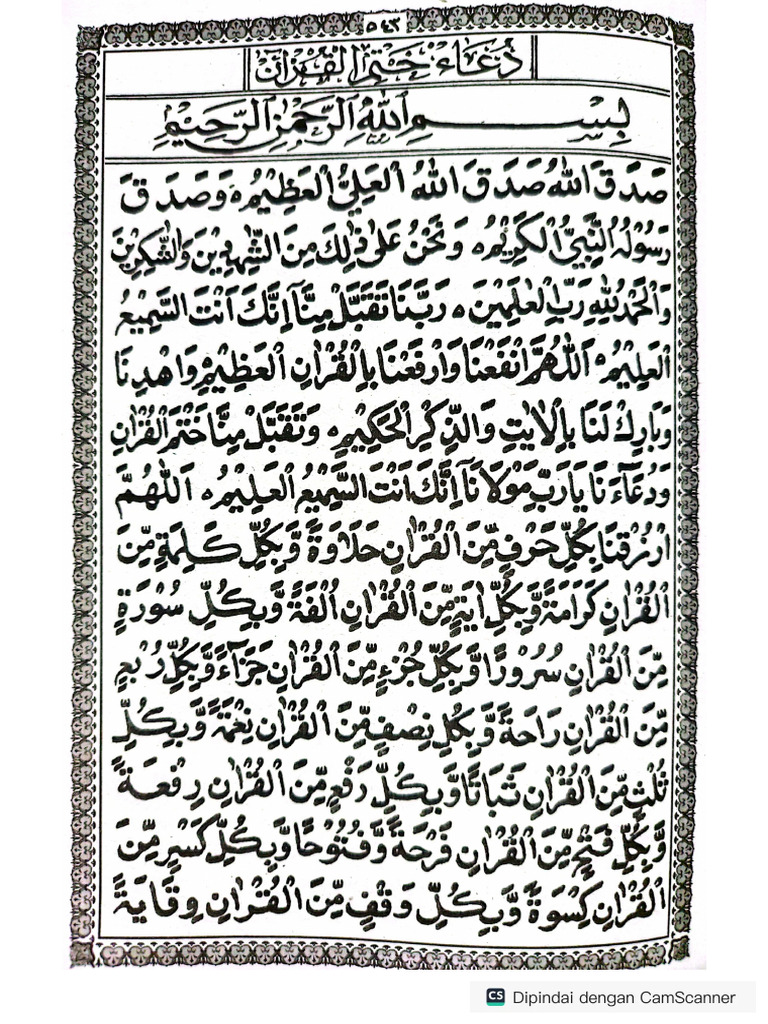 ٥٤٣
دُعَاءُ خَتْمِ الْقُرْآنِ
بِسْمِ اللّٰهِ الرَّحْمٰنِ الرَّحِيْمِ
صَدَقَ اللّٰهُ صَدَقَ اللّٰهُ الْعَلِيُّ الْعَظِيْمُ ۞ وَصَدَقَ
رَسُوْلُهُ النَّبِيُّ الْكَرِيْمُ ۞ وَنَحْنُ عَلٰى ذٰلِكَ مِنَ الشّٰهِدِيْنَ وَالشّٰكِرِيْنَ
وَالْحَمْدُ لِلّٰهِ رَبِّ الْعٰلَمِيْنَ ۞ رَبَّنَا تَقَبَّلْ مِنَّآ اِنَّكَ اَنْتَ السَّمِيْعُ
الْعَلِيْمُ ۞ اَللّٰهُمَّ انْفَعْنَا وَارْفَعْنَا بِالْقُرْاٰنِ الْعَظِيْمِ ۞ وَاهْدِنَا
وَبَارِكْ لَنَا بِالْاٰيٰتِ وَالذِّكْرِ الْحَكِيْمِ ۞ وَتَقَبَّلْ مِنَّا خَتْمَ الْقُرْاٰنِ
وَدُعَآءَنَا يَا رَبَّ مَوْلَانَآ اِنَّكَ اَنْتَ السَّمِيْعُ الْعَلِيْمُ ۞ اَللّٰهُمَّ
ارْزُقْنَا بِكُلِّ حَرْفٍ مِّنَ الْقُرْاٰنِ حَلَاوَةً وَّبِكُلِّ كَلِمَةٍ مِّنَ
الْقُرْاٰنِ كَرَامَةً وَّبِكُلِّ اٰيَةٍ مِّنَ الْقُرْاٰنِ اُلْفَةً وَّبِكُلِّ سُوْرَةٍ
مِّنَ الْقُرْاٰنِ سُرُوْرًا وَّبِكُلِّ جُزْءٍ مِّنَ الْقُرْاٰنِ جَزَآءً وَّبِكُلِّ رُبْعٍ
مِّنَ الْقُرْاٰنِ رَاحَةً وَّبِكُلِّ نِصْفٍ مِّنَ الْقُرْاٰنِ نِعْمَةً وَّبِكُلِّ
ثُلُثٍ مِّنَ الْقُرْاٰنِ ثَبَاتًا وَّبِكُلِّ رَفْعٍ مِّنَ الْقُرْاٰنِ رِفْعَةً
وَّبِكُلِّ فَتْحٍ مِّنَ الْقُرْاٰنِ فَرْحَةً وَّفُتُوْحًا وَّبِكُلِّ كَسْرٍ مِّنَ
الْقُرْاٰنِ كِسْوَةً وَّبِكُلِّ وَقْفٍ مِّنَ الْقُرْاٰنِ وِقَايَةً
CS Dipindai dengan CamScanner